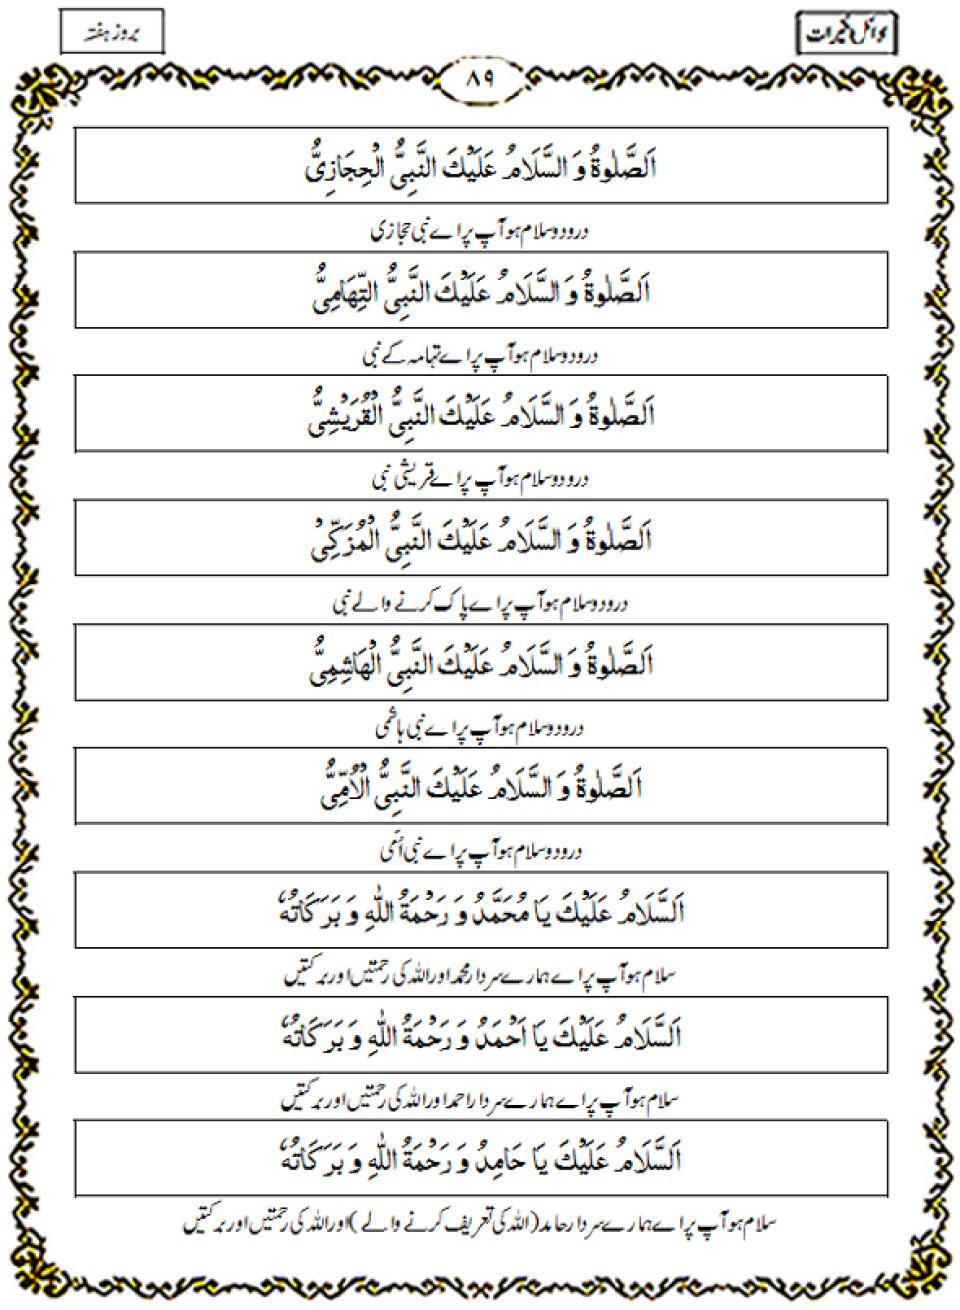 بروز ہفتہ
۸۹
اَلصَّلٰوةُ وَ السَّلَامُ عَلَيْكَ النَّبِيُّ الْحِجَازِيُّ
درود و سلام ہو آپ پر اے نبی حجازی
اَلصَّلٰوةُ وَ السَّلَامُ عَلَيْكَ النَّبِيُّ التِّهَامِيُّ
درود و سلام ہو آپ پر اے تہامہ کے نبی
اَلصَّلٰوةُ وَ السَّلَامُ عَلَيْكَ النَّبِيُّ الْقُرَيْشِيُّ
درود و سلام ہو آپ پر اے قریشی نبی
اَلصَّلٰوةُ وَ السَّلَامُ عَلَيْكَ النَّبِيُّ الْمُزَكِّىْ
درود و سلام ہو آپ پر اے پاک کرنے والے نبی
اَلصَّلٰوةُ وَ السَّلَامُ عَلَيْكَ النَّبِيُّ الْهَاشِمِيُّ
درود و سلام ہو آپ پر اے نبی ہاشمی
اَلصَّلٰوةُ وَ السَّلَامُ عَلَيْكَ النَّبِيُّ الْاُمِّيُّ
درود و سلام ہو آپ پر اے نبی اُمّی
اَلسَّلَامُ عَلَيْكَ يَا مُحَمَّدُ وَ رَحْمَةُ اللّٰهِ وَ بَرَكَاتُهٗ
سلام ہو آپ پر اے ہمارے سردار محمد اور اللہ کی رحمتیں اور برکتیں
اَلسَّلَامُ عَلَيْكَ يَا اَحْمَدُ وَ رَحْمَةُ اللّٰهِ وَ بَرَكَاتُهٗ
سلام ہو آپ پر اے ہمارے سردار احمد اور اللہ کی رحمتیں اور برکتیں
اَلسَّلَامُ عَلَيْكَ يَا حَامِدُ وَ رَحْمَةُ اللّٰهِ وَ بَرَكَاتُهٗ
سلام ہو آپ پر اے ہمارے سردار حامد (اللہ کی تعریف کرنے والے) اور اللہ کی رحمتیں اور برکتیں